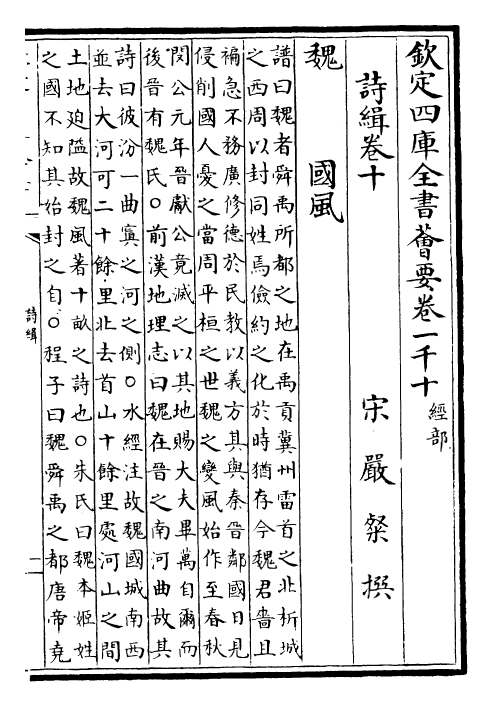 欽定四庫全書薈要卷一千十 經部
詩緝卷十 宋 嚴粲 撰
國風
魏
譜曰魏者舜禹所都之地在禹貢冀州雷首之北析城
之西周以封同姓焉儉約之化於時猶存今魏君嗇且
褊急不務廣修德於民教以義方其與秦晉鄰國日見
侵削國人憂之當周平桓之世魏之變風始作至春秋
閔公元年晉獻公竟滅之以其地賜大夫畢萬自爾而
後晉有魏氏○前漢地理志曰魏在晉之南河曲故其
詩曰彼汾一曲寘之河之側○水經注故魏國城南西
並去大河可二十餘里北去首山十餘里處河山之間
土地迫隘故魏風著十畝之詩也○朱氏曰魏本姬姓
之國不知其始封之自○程子曰魏舜禹之都唐帝堯
詩緝